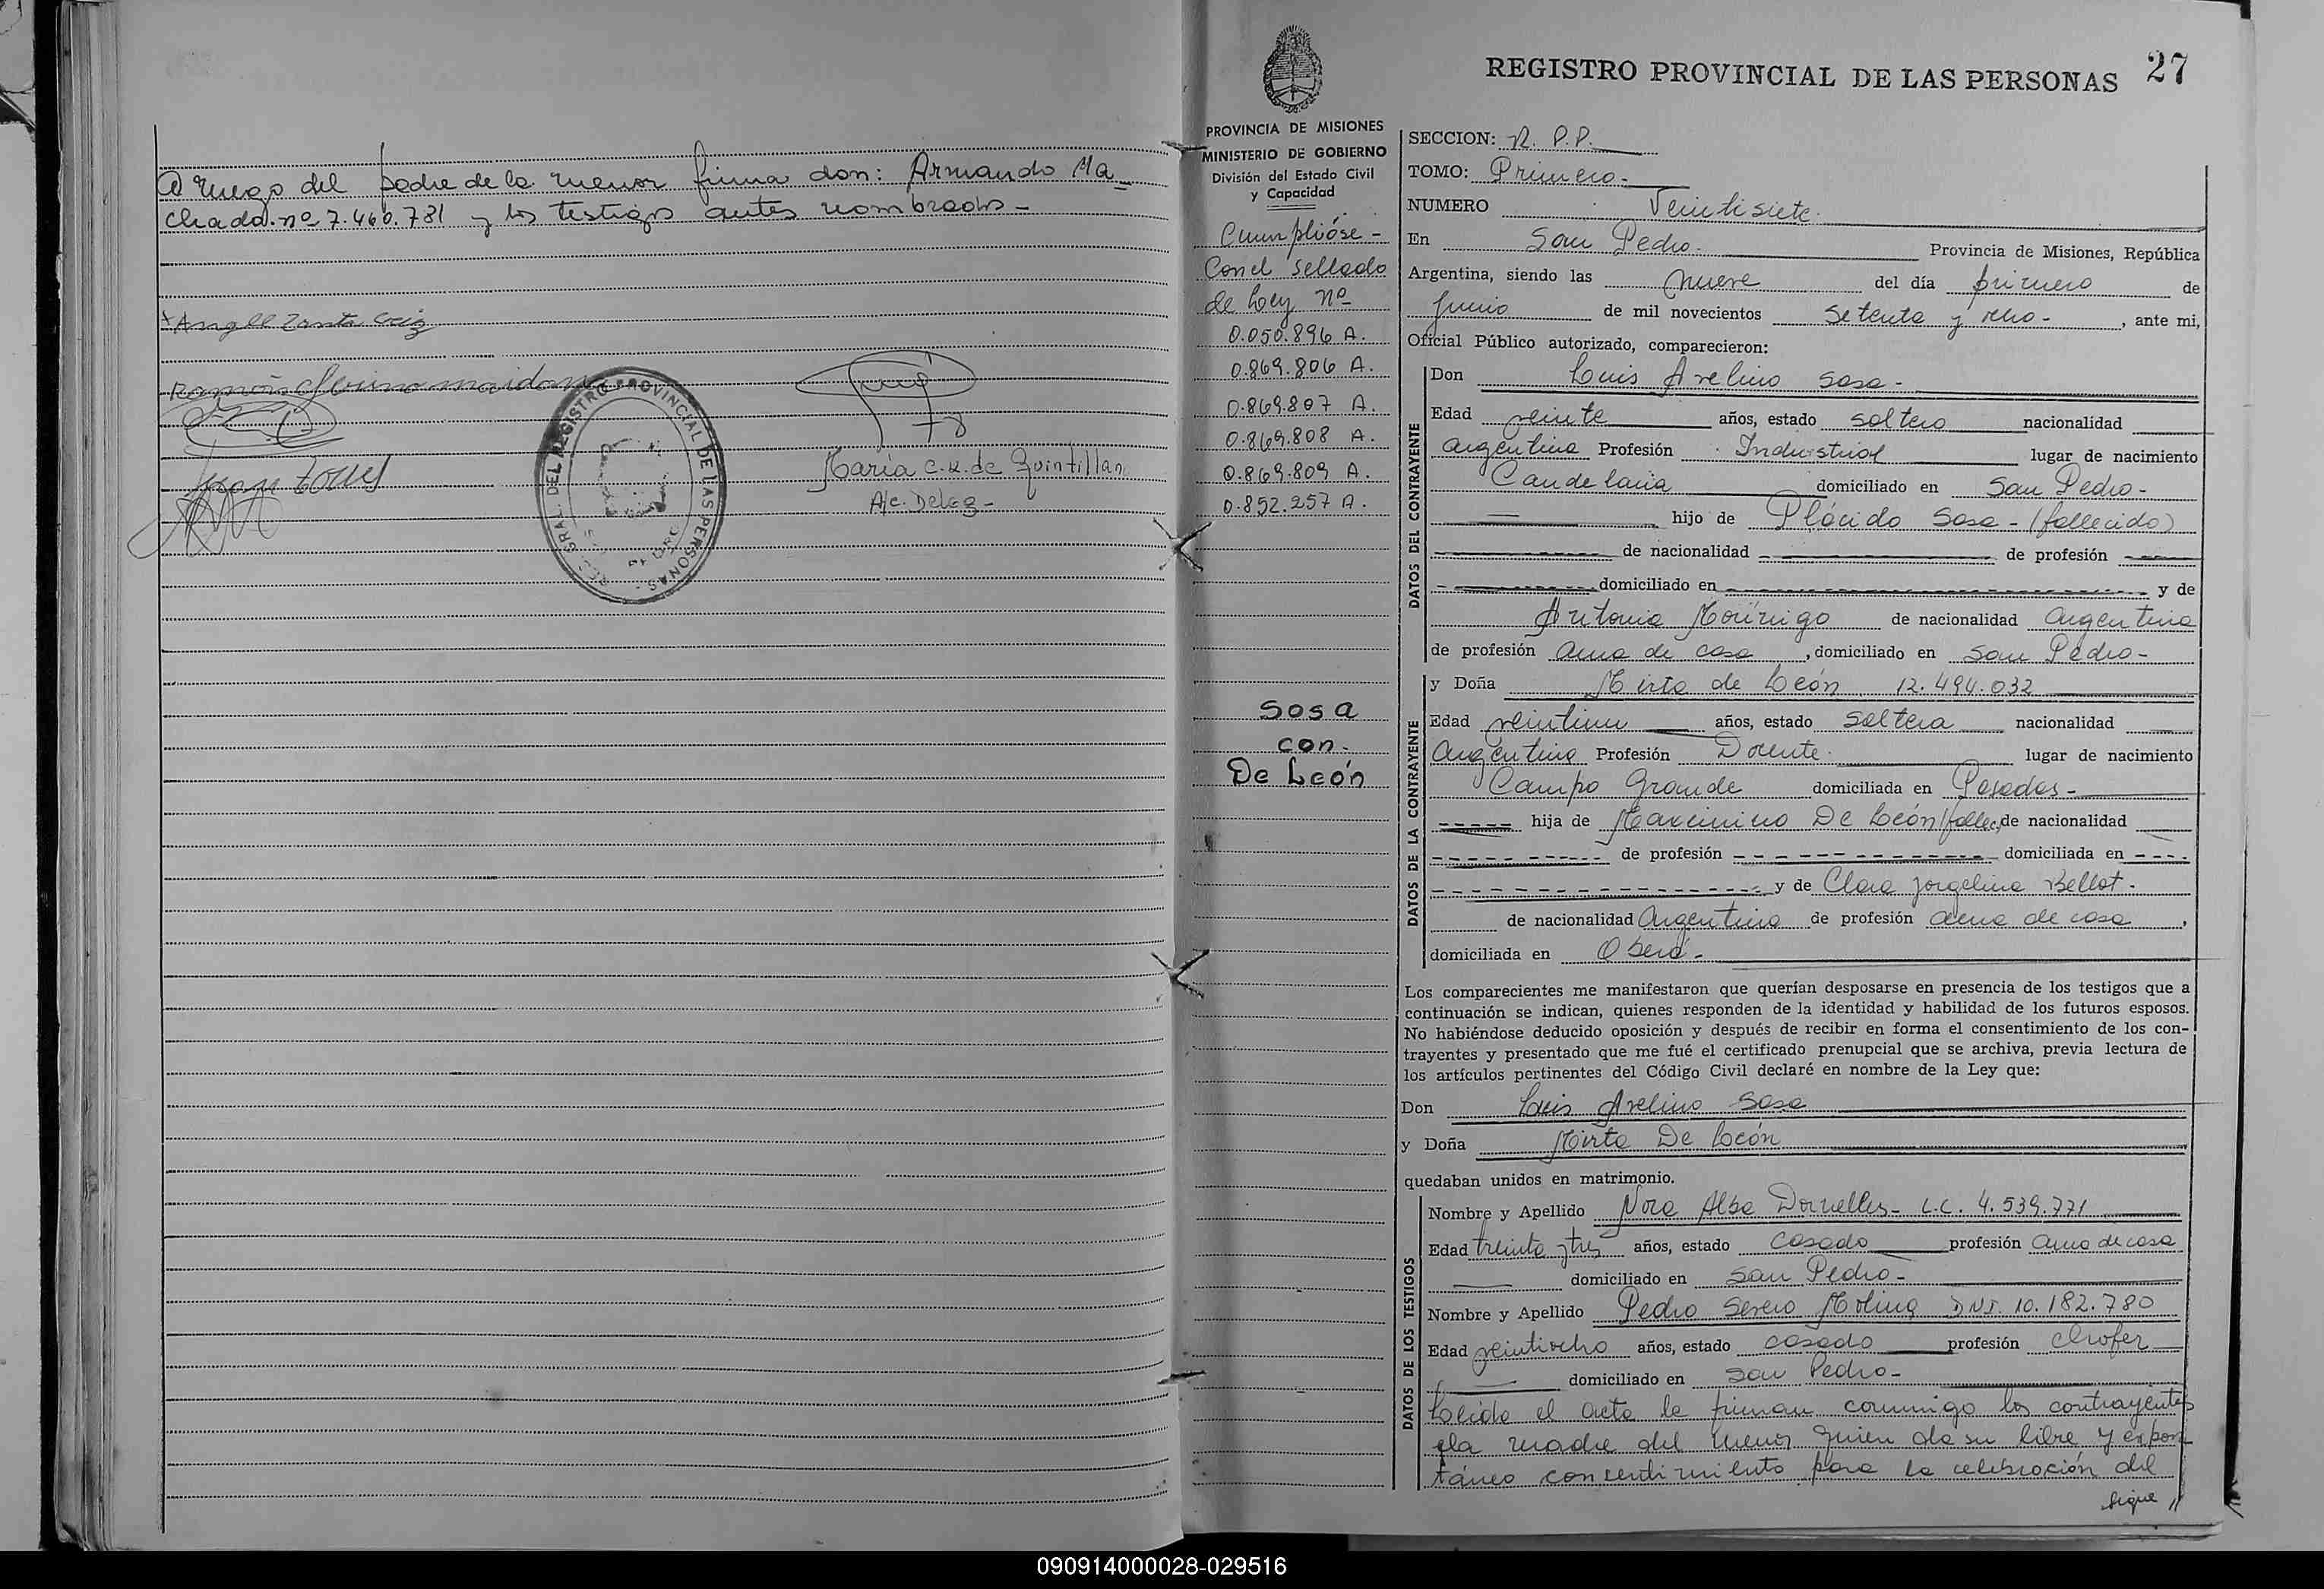 A ruego del padre de la menor firma don: Armando Ma_
chado. nº 7.460.781 y los testigos antes nombrados -
Ramón
Juan
REGISTRO PROVINCIAL DE LAS PERSONAS
María C.K. de Quintillan
PROVINCIA DE MISIONES
MINISTERIO DE GOBIERNO
División del Estado Civil
y Capacidad
Cumplióse -
Con el sellado
de Ley nº
0.050.896 A.
0.869.806 A.
0.869.807 A.
0.869.808 A.
0.869.809 A.
0.852.257 A.
Sosa
con -
De León
REGISTRO PROVINCIAL DE LAS PERSONAS 27
SECCION: R. P.P.
TOMO: Primero -
NUMERO Veintisiete.
En San Pedro. Provincia de Misiones, República
Argentina, siendo las nueve del día primero de
Junio de mil novecientos setenta y ocho - , ante mi,
Oficial Público autorizado, comparecieron:
DATOS DEL CONTRAYENTE
Don Luis Avelino Sosa -
Edad veinte años, estado soltero nacionalidad
argentina Profesión Industrial lugar de nacimiento
Candelaria domiciliado en San Pedro -
hijo de Plácido Sosa - (fallecido)
de nacionalidad de profesión
domiciliado en y de
Antonia Mourigo de nacionalidad argentina
de profesión ama de casa , domiciliado en San Pedro -
DATOS DE LA CONTRAYENTE
y Doña Mirta de León 12.494.032
Edad veintiun años, estado soltera nacionalidad
Argentina Profesión Docente lugar de nacimiento
Campo Grande domiciliada en Posadas -
hija de Maximino De León (fallec) de nacionalidad
de profesión domiciliada en
y de Clara Jorgelina Bellot -
de nacionalidad Argentina de profesión ama de casa ,
domiciliada en Oberá -
Los comparecientes me manifestaron que querían desposarse en presencia de los testigos que a
continuación se indican, quienes responden de la identidad y habilidad de los futuros esposos.
No habiéndose deducido oposición y después de recibir en forma el consentimiento de los con-
trayentes y presentado que me fué el certificado prenupcial que se archiva, previa lectura de
los artículos pertinentes del Código Civil declaré en nombre de la Ley que:
Don Luis Avelino Sosa
y Doña Mirta De León
quedaban unidos en matrimonio.
DATOS DE LOS TESTIGOS
Nombre y Apellido Nora Alba Dornelles - L.C. 4.539.771
Edad treinta y tres años, estado casado profesión Ama de casa
domiciliado en San Pedro -
Nombre y Apellido Pedro Severo Molina DNI. 10.182.780
Edad veintiocho años, estado casado profesión chofer
domiciliado en San Pedro -
Leída el acta la firman conmigo los contrayentes
y la madre del menor quien da su libre y expon
táneo consentimiento para la celebración del
Sigue //
090914000028-029516